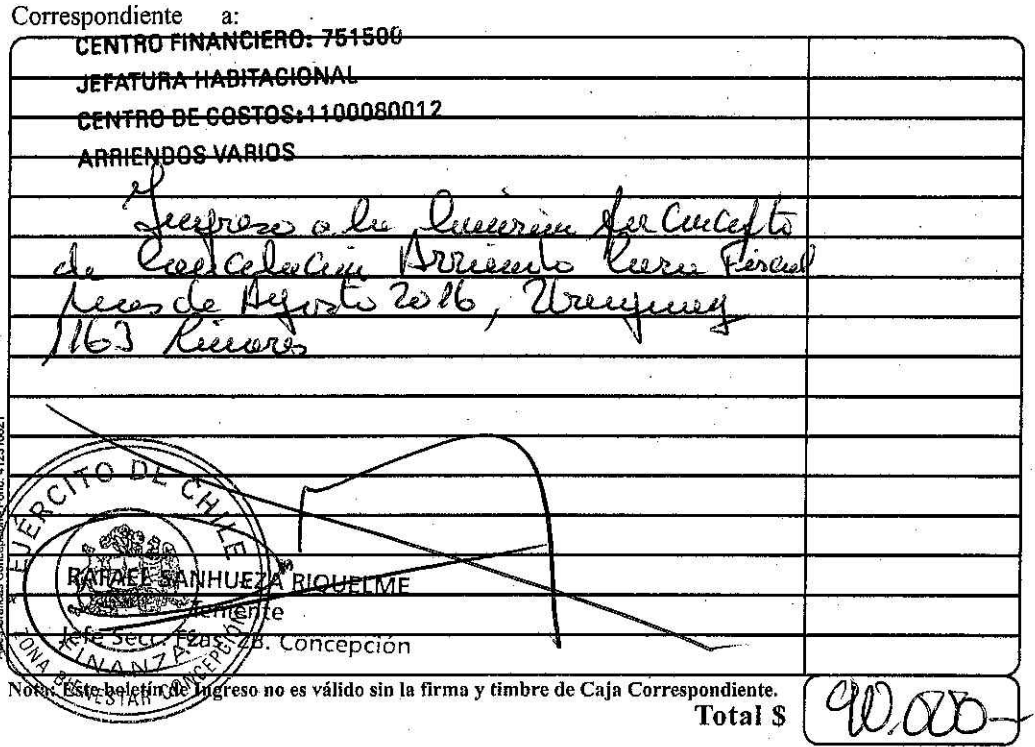 Correspondiente a:
CENTRO FINANCIERO: 751500
JEFATURA HABITACIONAL
CENTRO DE COSTOS:1100080012
ARRIENDOS VARIOS
Ingreso a la por Concepto
de Cancelación Arriendo Casa Fiscal
mes de Agosto 2016, Uruguay
1163 Linares
EJERCITO DE CHILE
RAFAEL SANHUEZA RIQUELME
Teniente
Jefe Secc. Fzas. ZB. Concepción
FINANZAS
ZONA BIENESTAR CONCEPCIÓN
Nota: Este boletín de Ingreso no es válido sin la firma y timbre de Caja Correspondiente.
Total $ 90.000-